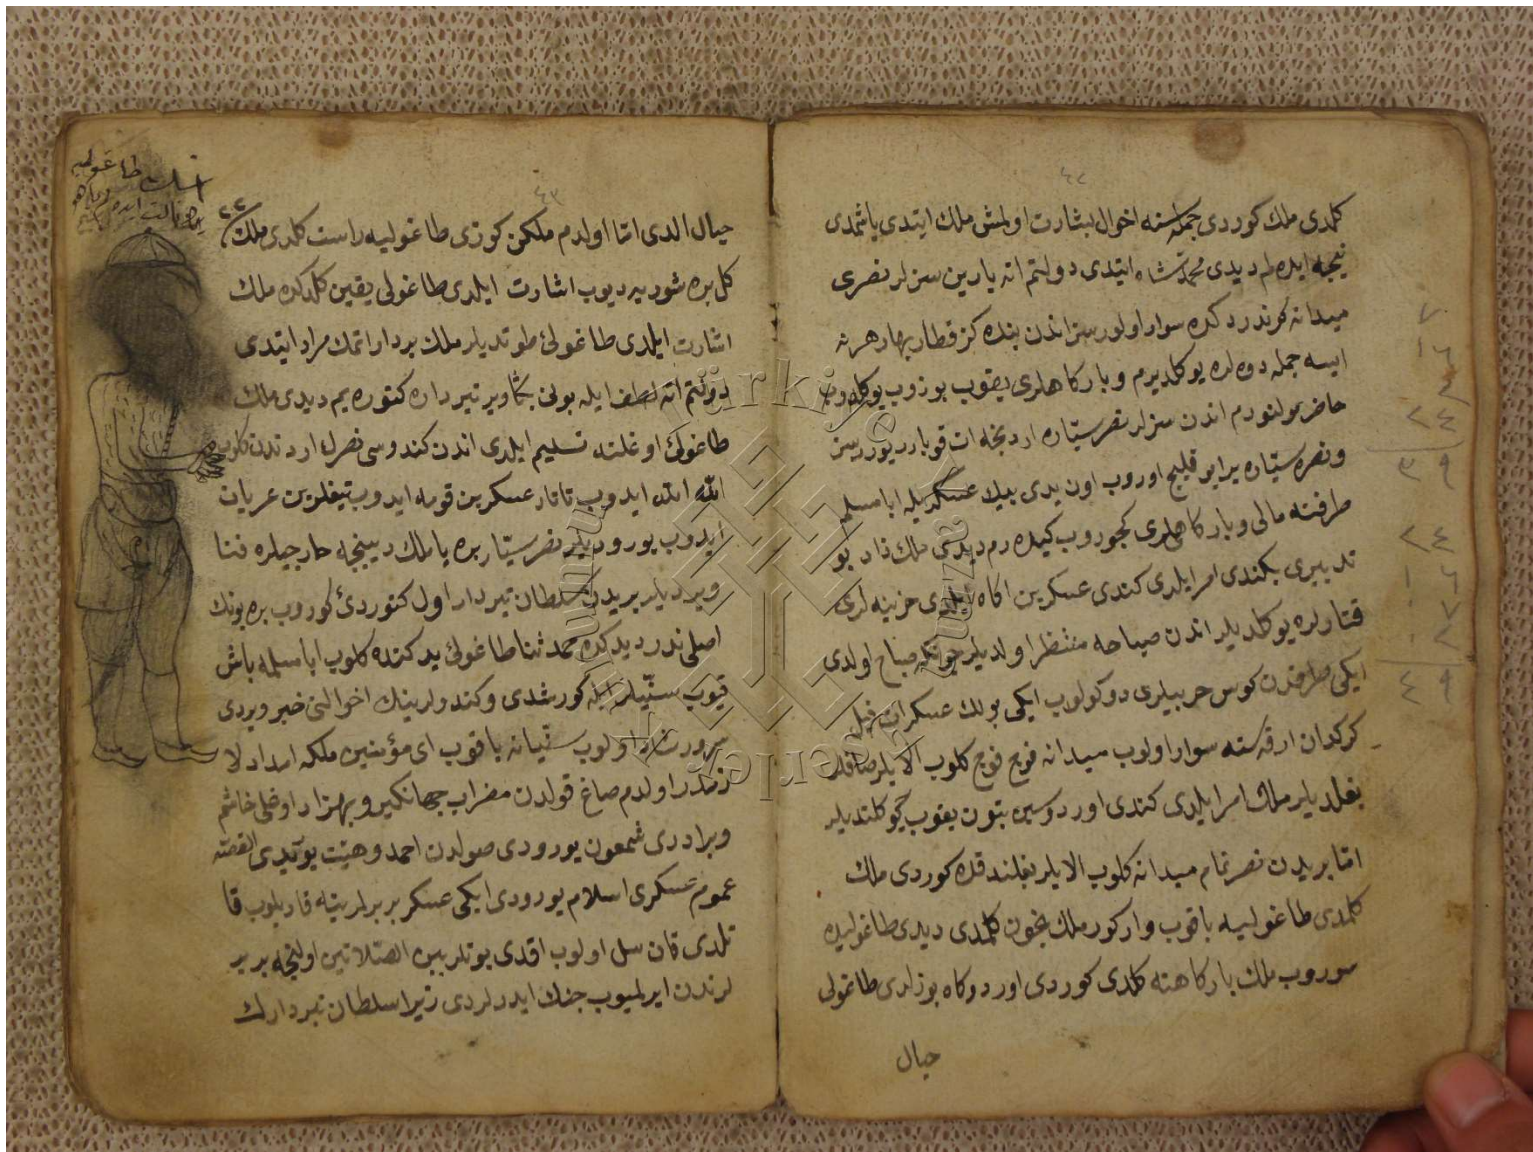 كلدی ملك كوردی جمله‌سته اخوال بشارت اولمش ملك ایتدی یا شمدی
نیجه ایده‌لم دیدی محمد شاه ایتدی دولتم اته یارین سزلر نصری
میدانه كوندردكده سوار اولورسز اندن بنده كز قطار بهار هر نه
ایسه جمله دوه‌لره یوكلدیرم و باركاهلری یقوب بوزوب یوكلدوب
حاضر بولنورم اندن سزلر نصر ستیاره اردنجه ات قوپارر یوررسز
و نصره ستیاره برابر قلیج اوروب اون یدی بیك عسكریله ابا مسلم
طرفنه مالی و باركاهلری كجوروب كیده‌رم دیدی ملك ذاد بو
تدبیری بكندی امر ایلدی كندی عسكرین اكاه ایلدی خزینه لری
قتارلره یوكلدیلر اندن صباحه منتظر اولدیلر چونكه صباح اولدی
ایكی طرفدن كوس حربیلری دوكولوب ایكی بولك عسكر ات فیل
كركدان ارقه‌سنه سوار اولوب میدانه فوج فوج كلوب الایلر صافلر
بغلدیلر ملك امر ایلدی كندی اوردوسین بتون یقوب كوكلتدیلر
امّا بریدن نصر تمام میدانه كلوب الایلر بغلندقده كوردی ملك
كلمدی طاغولیه باقوب وار كور ملك نیجون كلمدی دیدی طاغولیده
سوروب ملك باركاهنه كلدی كوردی اوردوكاه بوزلدی طاغولی
حیال
٤٢
٧
١٦
٢٤
٣٩
٢٤
١٦
٠٧
٠٢
٤٩
٤٣
حیال الدی امّا اولدم ملكن كوزی طاغولیه راست كلدی ملك
كل بره شوریه دیوب اشارت ایلدی طاغولی یقین كلدكده ملك
اشارت ایلدی طاغولی طوتدیلر ملك بردار اتمك مراد ایتدی
دولتم اته لطف ایله بونی بكا ویر تبرداره كتوره‌یم دیدی ملك
طاغولی اوغلنه تسلیم ایلدی اندن كندوسی نصرك اردندن كلوب
الله الله ایدوب تاتار عسكرین قومه ایدوب تیغلرین عریان
ایدوب یورودیلر نصر ستیار بره یا ملك دیینجه خارجیلره فنا
ویردیلر بریدن سلطان تبردار اول كتوردی كوروب بره بونك
اصلی ندر دیدكده محمد ثنا طاغولی یدكنده كلوب ابا مسلمه باش
قیوب سنّیلر ایله كورشدی و كندولرینك اخوالنی خبر ویردی
سرور شاد اولوب سنیانه باقوب ای مؤمنین ملكه امداد لا
زمدر اولدم صاغ قولدن مضراب جهانكیر و بهزاد اوغلی خاشم
و برادری شمعون یورودی صولدن احمد و هیّت یورّدی القصّه
عموم عسكری اسلام یورودی ایكی عسكر بربرلرینه قاریلوب قا
تلدی قان سل اولوب اقدی بوتلر بیره الصتلاتین اولنجه بربر
لرندن ایرلمیوب جنك ایدرلردی زیرا سلطان تبردارك